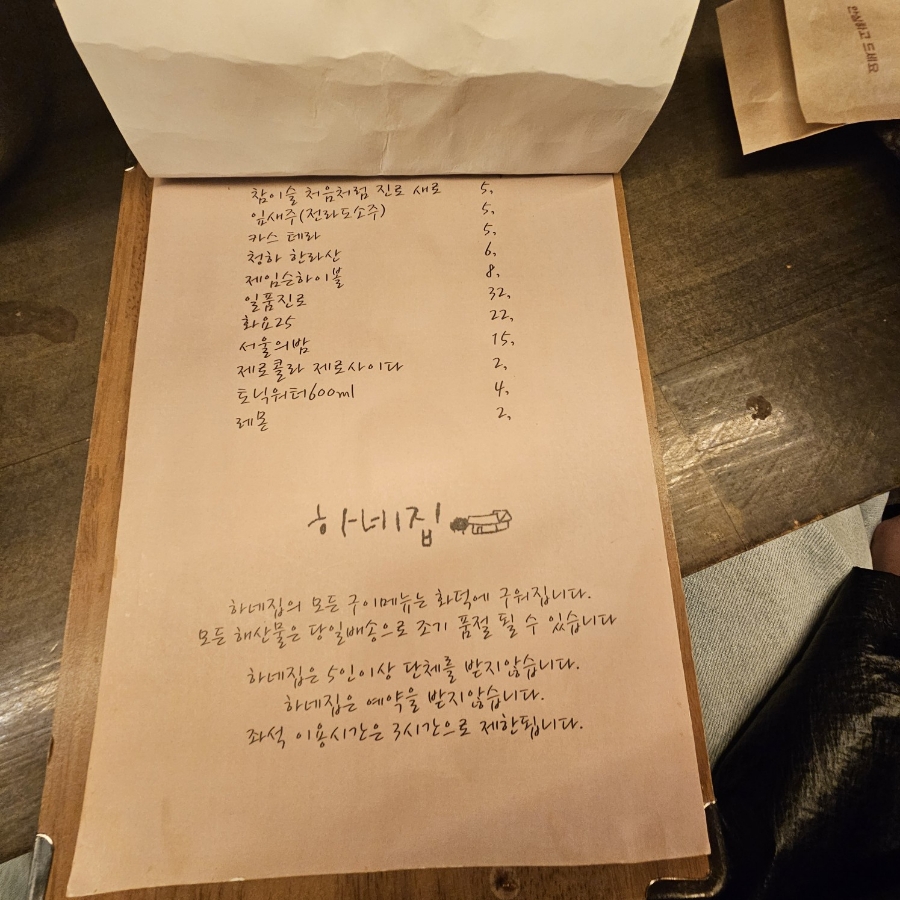 안심하고 드세요
참이슬 처음처럼 진로 새로 5,
잎새주(전라도소주) 5,
카스 테라 5,
청하 한라산 6,
제임슨하이볼 8,
일품진로 32,
화요25 22,
서울의밤 15,
제로콜라 제로사이다 2,
토닉워터600ml 4,
레몬 2,
하네집
하네집의 모든 구이메뉴는 화덕에 구워집니다.
모든 해산물은 당일배송으로 조기 품절 될 수 있습니다
하네집은 5인이상 단체를 받지않습니다.
하네집은 예약을 받지않습니다.
좌석 이용시간은 3시간으로 제한됩니다.